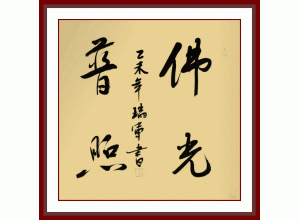 佛光
普照
乙未年瑞军书